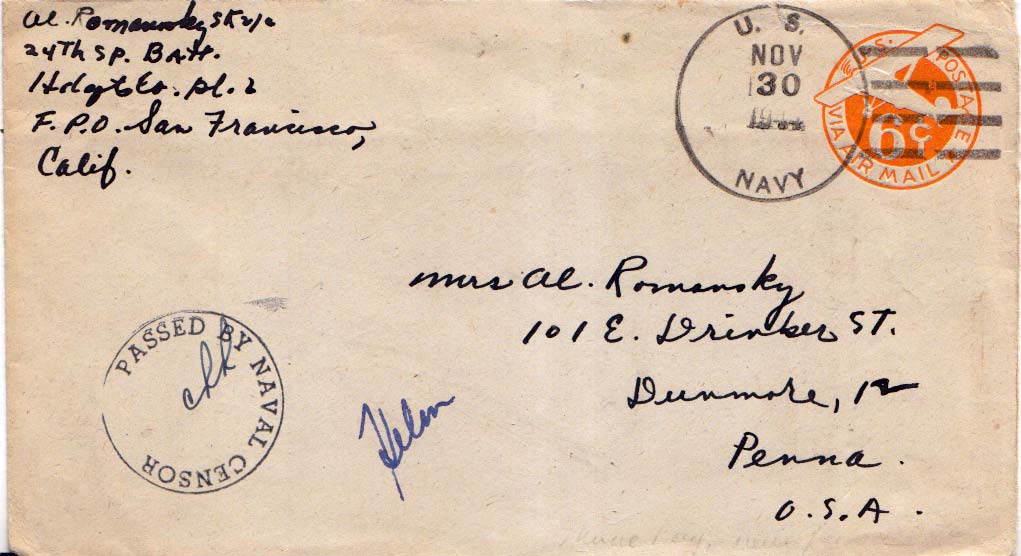 Al. Romansky SK 2/c
24Th Sp. Batt.
Hdqt Co. Pl. 2
F.P.O. San Francisco,
Calif.
U. S.
NOV
30
1944
NAVY
U.S. POSTAGE
6¢
VIA AIR MAIL
Mrs Al. Romansky
101 E. Drinker ST.
Dunmore, 12
Penna.
U.S.A.
PASSED BY NAVAL CENSOR
Helen